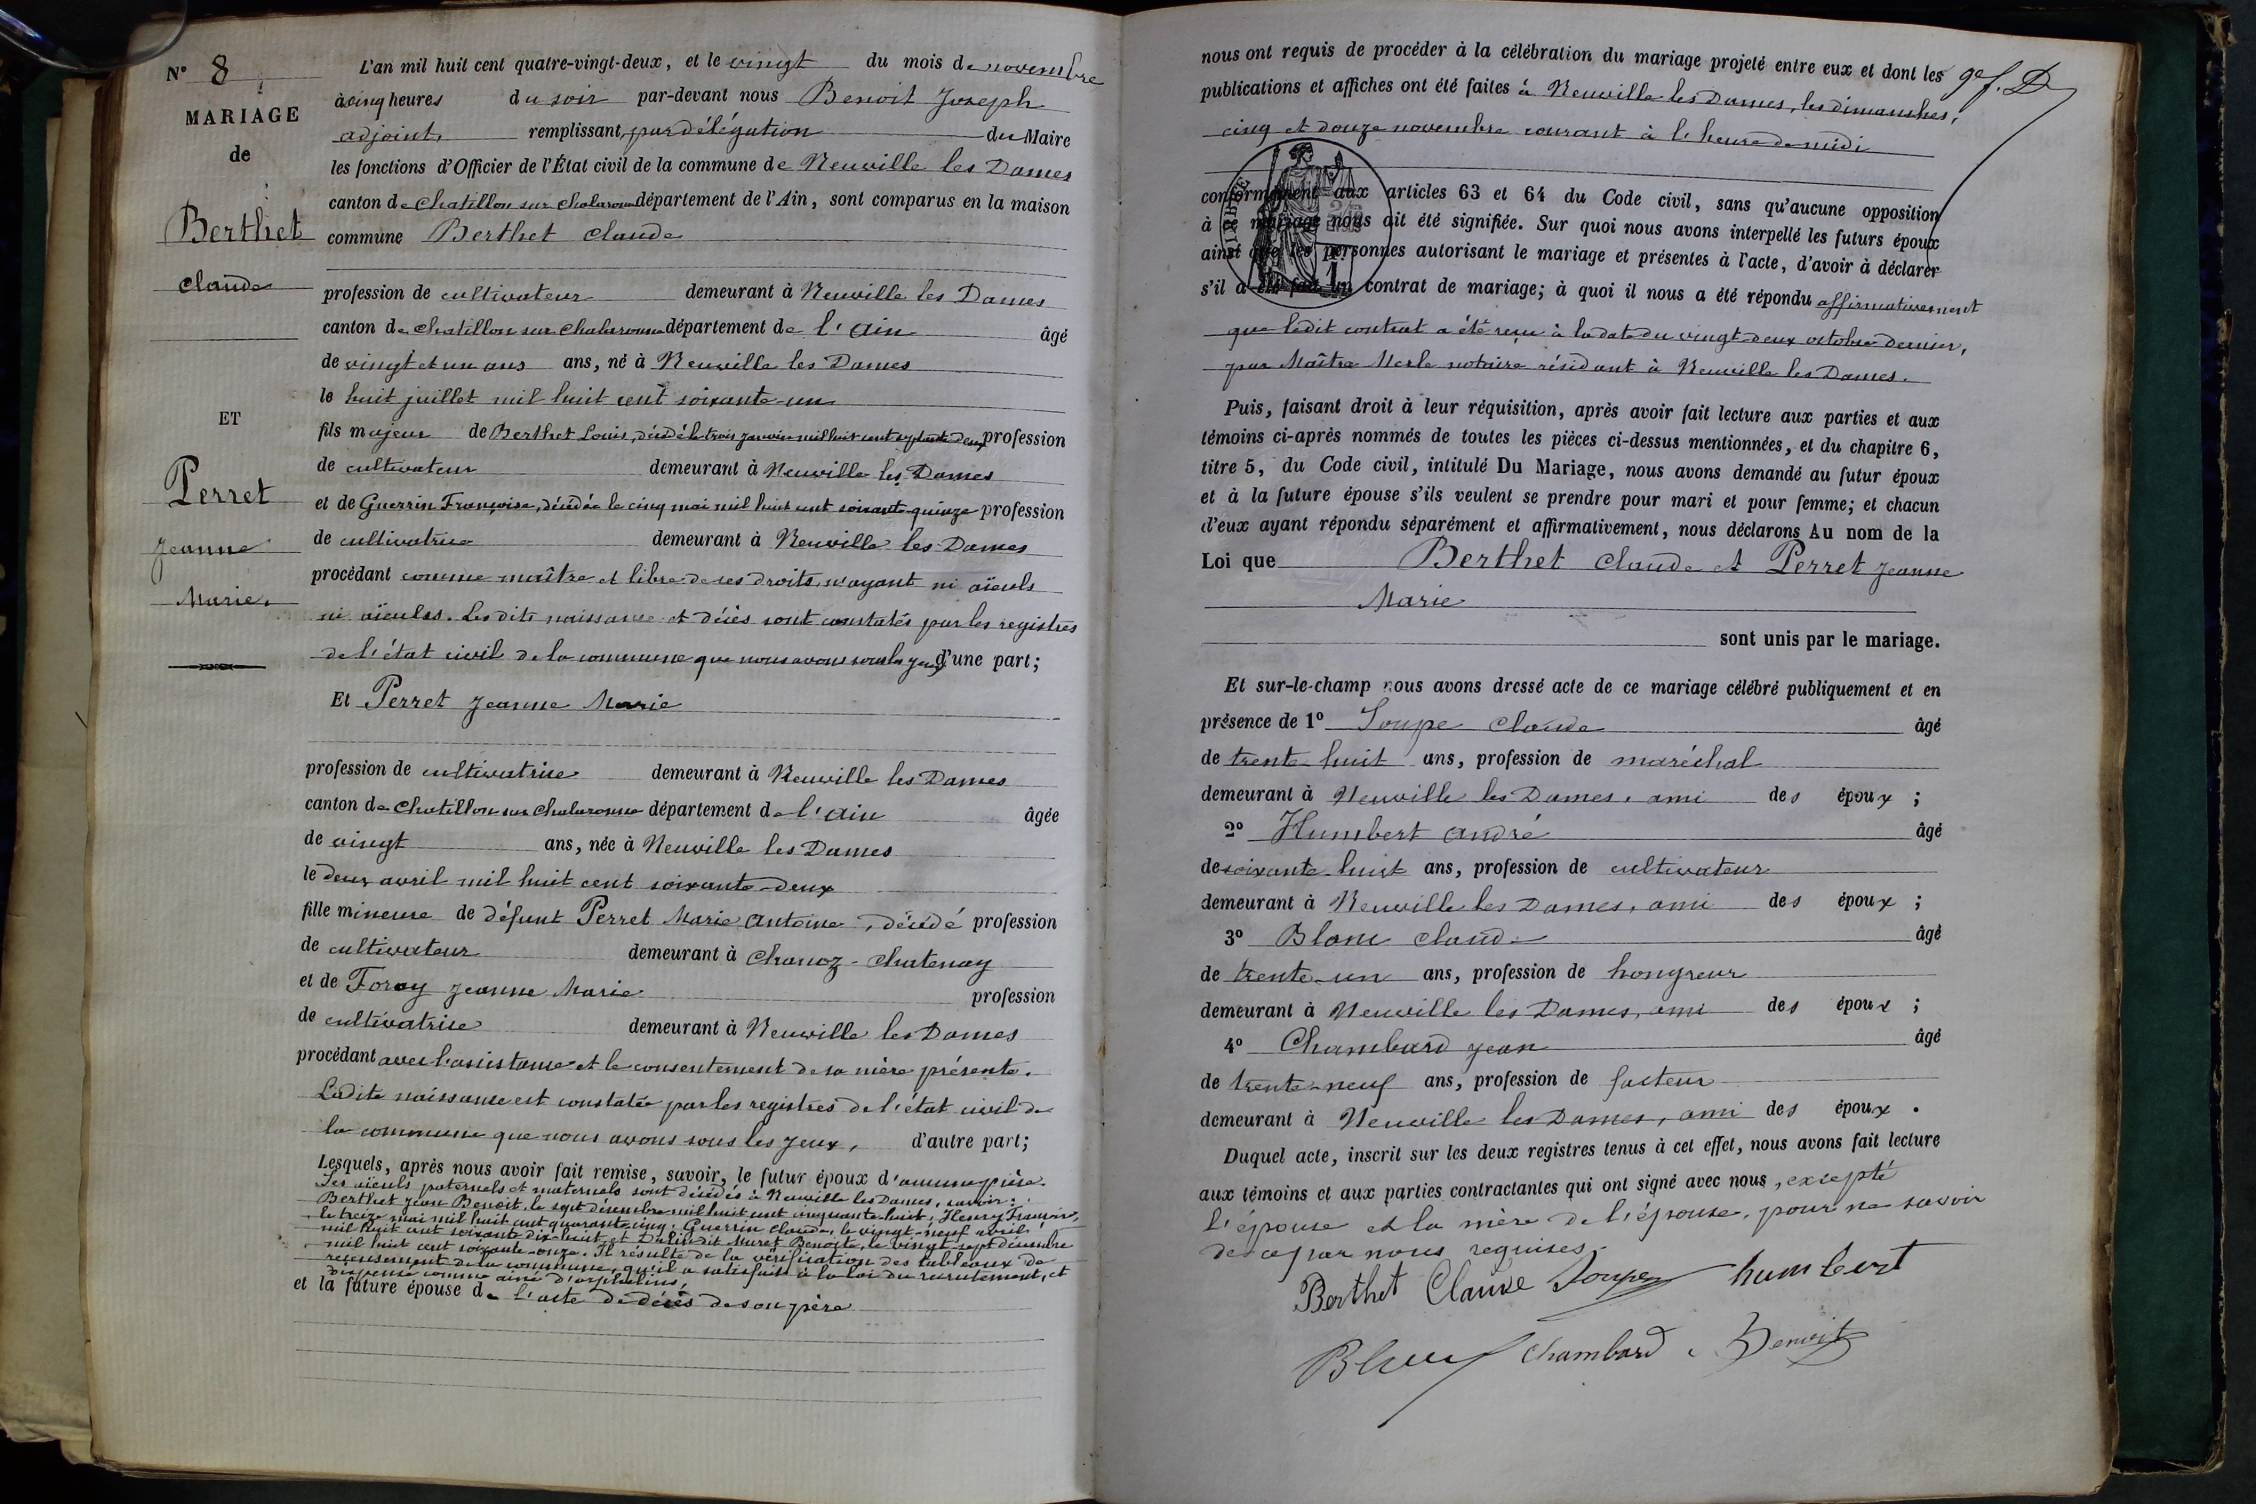 N° 8
MARIAGE
de
Berthet
Claude
ET
Perret
Jeanne
Marie.
L'an mil huit cent quatre-vingt-deux, et le vingt du mois de novembre
à cinq heures du soir par-devant nous Benoit Joseph
adjoint, remplissant, par délégation du Maire
les fonctions d'Officier de l'État civil de la commune de Neuville les Dames
canton de Chatillon sur Chalaronne département de l'Ain, sont comparus en la maison
commune Berthet Claude
profession de cultivateur demeurant à Neuville les Dames
canton de Chatillon sur Chalaronne département de l'Ain âgé
de vingt et un ans ans, né à Neuville les Dames
le huit juillet mil huit cent soixante-un
fils majeur de Berthet Louis, décédé le trois janvier mil huit cent septante deux, profession
de cultivateur demeurant à Neuville les Dames
et de Guerrin Françoise, décédée le cinq mai mil huit cent soixante-quinze profession
de cultivatrice demeurant à Neuville les Dames
procédant comme maître et libre de ses droits, n'ayant ni aïeuls
ni aïeules. Les dits naissance et décès sont constatés par les registres
de l'état civil de la commune que nous avons sous les yeux, d'une part;
Et Perret Jeanne Marie
profession de cultivatrice demeurant à Neuville les Dames
canton de Chatillon sur Chalaronne département de l'Ain âgée
de vingt ans, née à Neuville les Dames
le deux avril mil huit cent soixante-deux
fille mineure de défunt Perret Marie Antoine, décédé profession
de cultivateur demeurant à Chanoz-Chatenay
et de Foray Jeanne Marie profession
de cultivatrice demeurant à Neuville les Dames
procédant avec l'assistance et le consentement de sa mère présente.
Ladite naissance est constatée par les registres de l'état civil de
la commune que nous avons sous les yeux, d'autre part;
Lesquels, après nous avoir fait remise, savoir, le futur époux d'aucune pièce.
Ses aïeuls paternels et maternels sont décédés à Neuville les Dames, savoir:
Berthet Jean Benoit, le sept décembre mil huit cent cinquante-huit, Henry
le treize mai mil huit cent quarante-cinq; Guerrin Claude, le vingt-neuf avril
mil huit cent soixante dix-huit et dit Muret Benoite, le vingt-sept décembre
mil huit cent soixante-onze. Il résulte de la vérification des tableaux de
recensement de la commune, qu'il a satisfait à la loi du recrutement, et
dispensé comme aîné d'orphelins,
et la future épouse de l'acte de décès de son père
nous ont requis de procéder à la célébration du mariage projeté entre eux et dont les
publications et affiches ont été faites à Neuville les Dames, les dimanches,
cinq et douze novembre courant à l'heure de midi
conformément aux articles 63 et 64 du Code civil, sans qu'aucune opposition
à mariage nous ait été signifiée. Sur quoi nous avons interpellé les futurs époux
ainsi que les personnes autorisant le mariage et présentes à l'acte, d'avoir à déclarer
s'il a été fait un contrat de mariage; à quoi il nous a été répondu affirmativement
que ledit contrat a été reçu à la date du vingt-deux octobre dernier,
par Maître Merle notaire résidant à Neuville les Dames.
Puis, faisant droit à leur réquisition, après avoir fait lecture aux parties et aux
témoins ci-après nommés de toutes les pièces ci-dessus mentionnées, et du chapitre 6,
titre 5, du Code civil, intitulé Du Mariage, nous avons demandé au futur époux
et à la future épouse s'ils veulent se prendre pour mari et pour femme; et chacun
d'eux ayant répondu séparément et affirmativement, nous déclarons Au nom de la
Loi que Berthet Claude et Perret Jeanne
Marie
sont unis par le mariage.
Et sur-le-champ nous avons dressé acte de ce mariage célébré publiquement et en
présence de 1° Soupe Claude âgé
de trente-huit ans, profession de maréchal
demeurant à Neuville les Dames, ami des époux ;
2° Humbert André âgé
de soixante-huit ans, profession de cultivateur
demeurant à Neuville les Dames, ami des époux ;
3° Blanc Claude âgé
de trente-un ans, profession de hongreur
demeurant à Neuville les Dames, ami des époux ;
4° Chambard Jean âgé
de trente-neuf ans, profession de facteur
demeurant à Neuville les Dames, ami des époux.
Duquel acte, inscrit sur les deux registres tenus à cet effet, nous avons fait lecture
aux témoins et aux parties contractantes qui ont signé avec nous, excepté
l'épouse et la mère de l'épouse, pour ne savoir
de ce par nous requises.
Berthet Claude Soupe humbert
Blanc Chambard Benoit